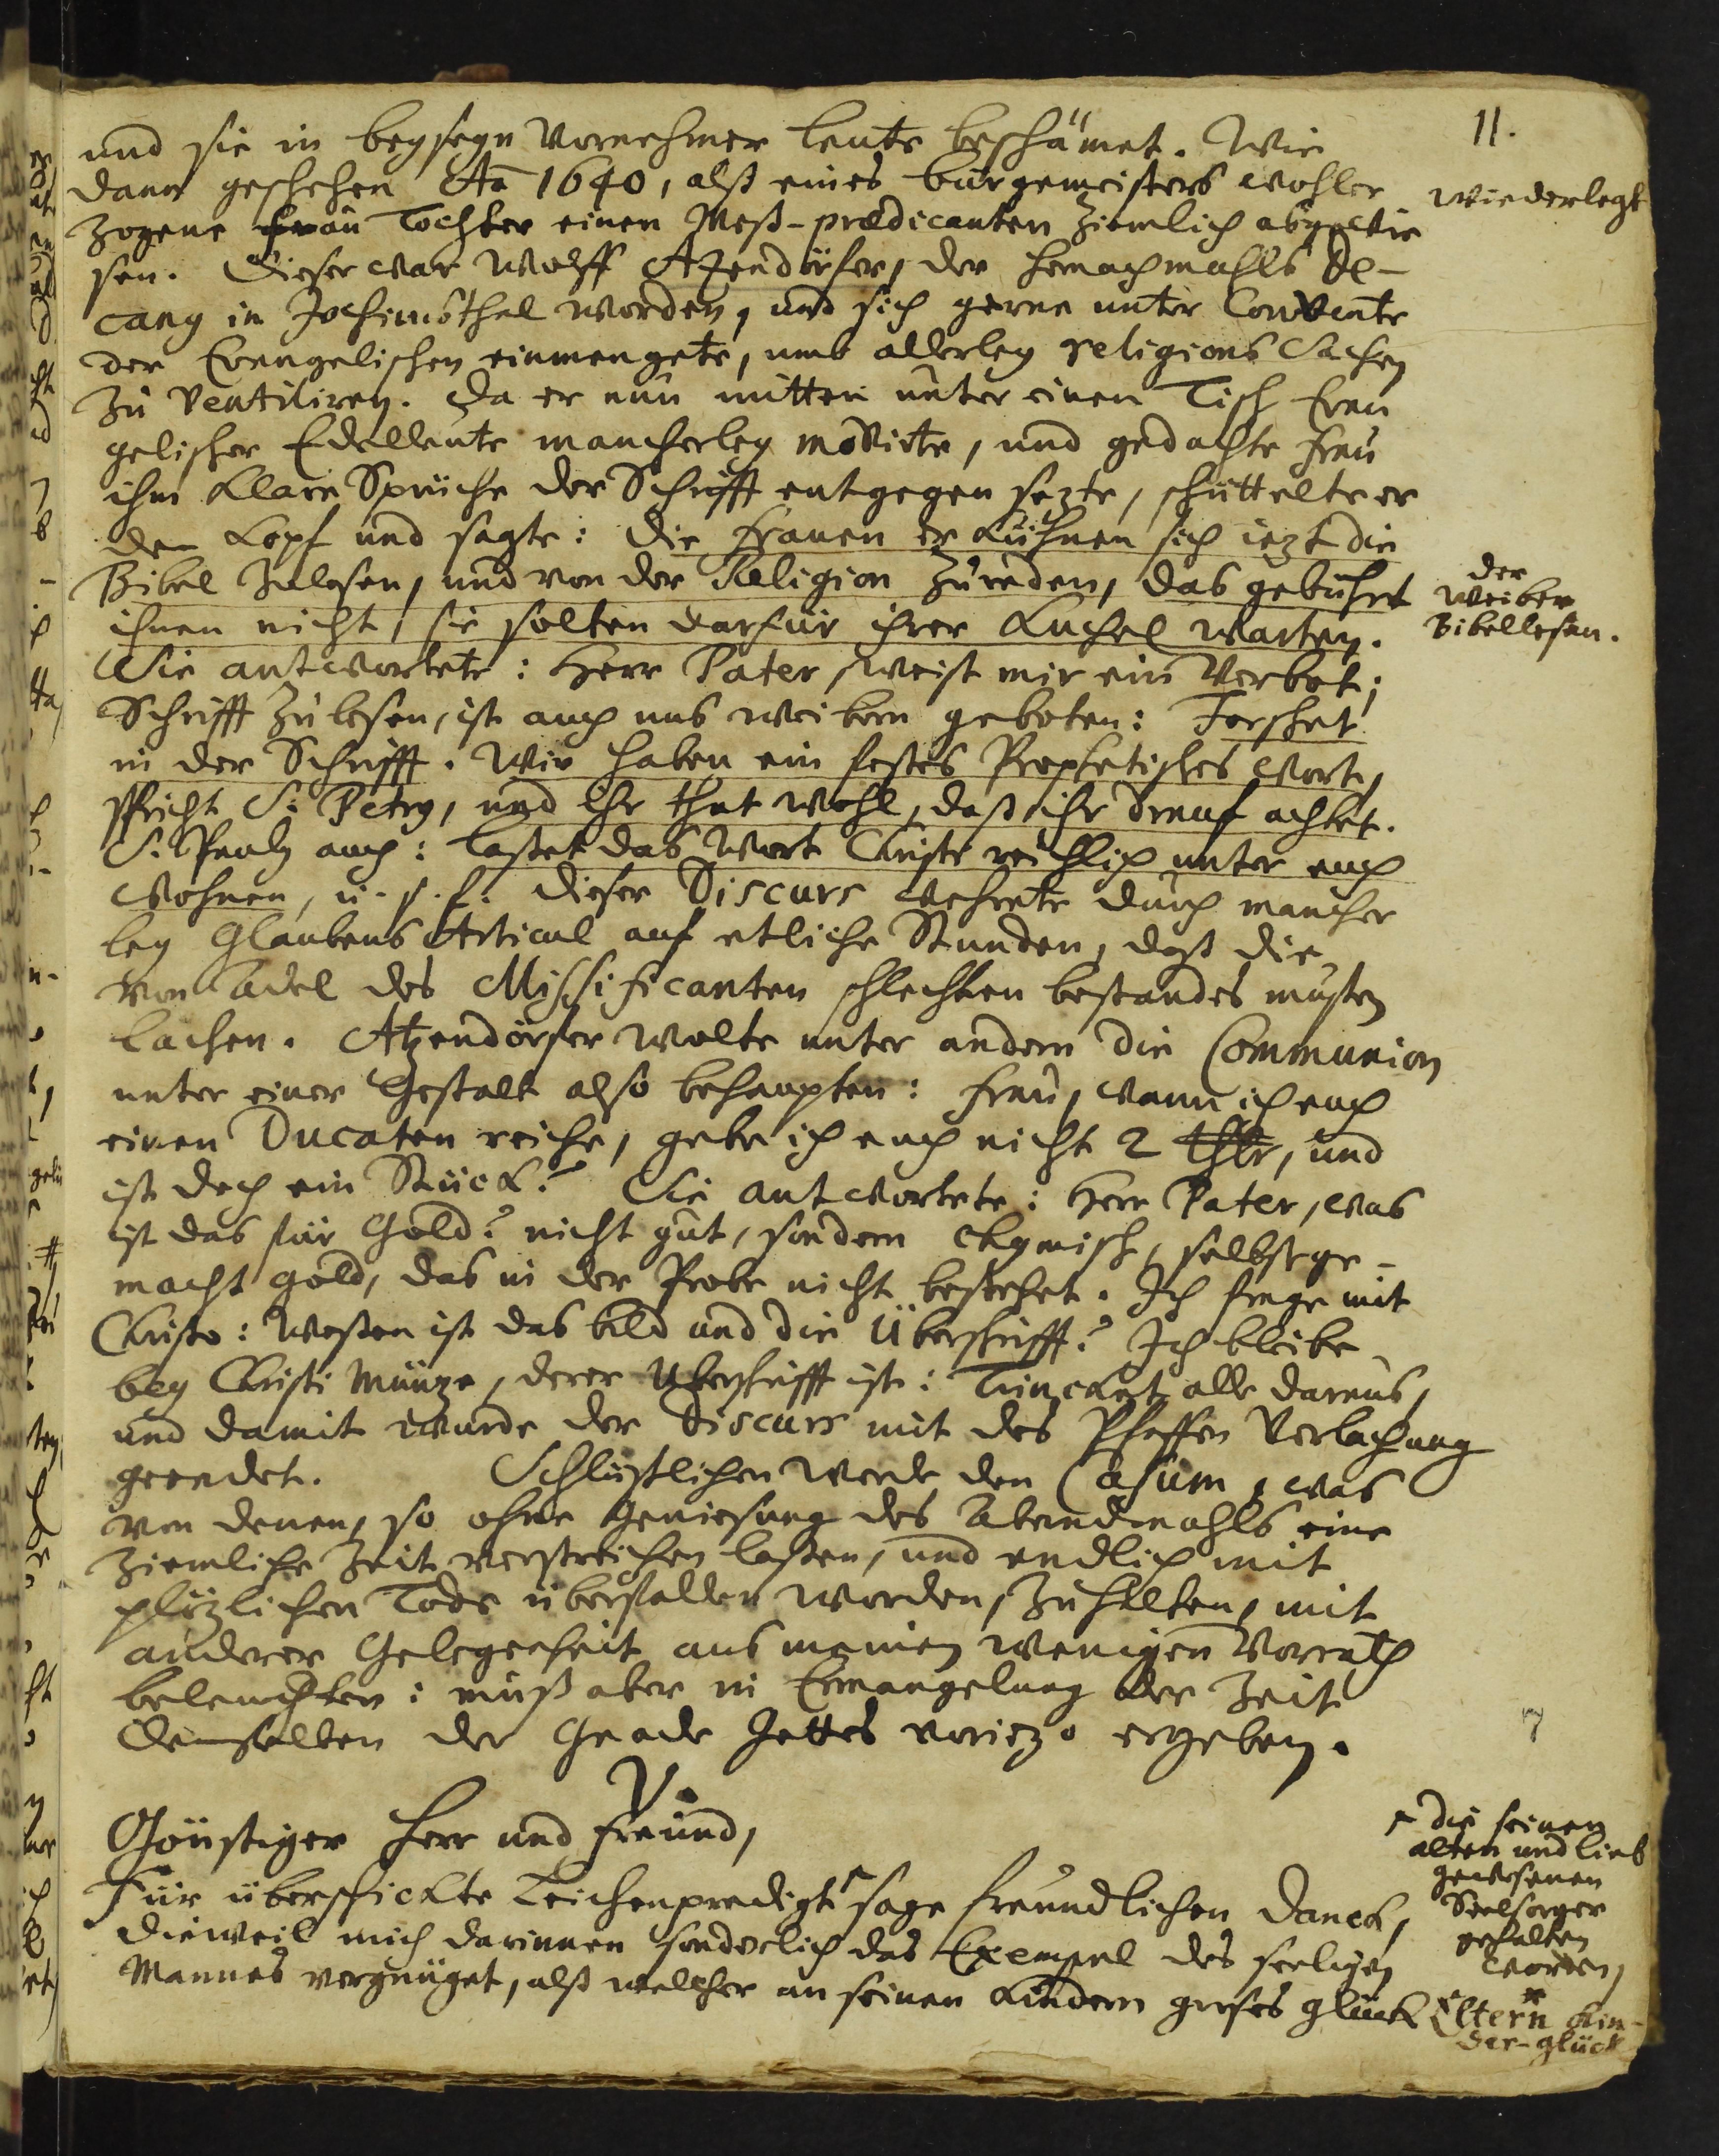 11.
und sie in beyseyn vornehmer leute beschämet. Wie
dann geschehen Ao 1640, alß eines burgemeisters wohler
wiederlegt
zogene frau Tochter einen Meß-prædicanten ziemlich abgewie
sen. Dieser war Wolff Azendörfer, der hernachmahls De-
cany in Jochimsthal worden, und sich gerne unter Convente
der Evangelischen einmengete, umb allerley religions Sachen
zu ventiliren. Da er nun mitten unter einen Tisch Evan
gelischer Edelleute mancherley movirte, und gedachte frau
ihm klare Sprüche der Schrifft entgegen sezte, schüttelte er
den kopf und sagte: Die frauen erkühnen sich iezt die
Bibel zulesen, und von der Religion zureden, das gebühret
der
weiber
Bibellesen.
ihnen nicht, sie solten darfür ihrer kuchel warten.
Sie antwortete: Herr Pater, weist mir ein Verbot;
Schrifft zu lesen, ist auch uns weibern geboten: Forschet
in der Schrifft. Wir haben ein festes Prophetisches wort,
spricht S. Petry, und ihr thut wohl, daß ihr drauf achtet.
S. Pauly auch: lasset das Wort Christi reichlich unter euch
wohnen, u. s. f. dieser Discurs wehrete durch mancher
ley Glaubens Articul auf etliche Stunden, daß die
von adel des Missificanten schlechten bestandes musten
lachen. Atzendörfer wolte unter andern die Communion
unter einer Gestalt also behaupten: frau, wann ich euch
einen Ducaten reiche, gebe ich euch nicht 2 thlr, und
ist doch ein Stück? Sie antwortete: Herr Pater, was
ist das für Gold? nicht gut, sondern chymisch, selbstge-
macht gold, das in der Probe nicht bestehet. Ich frage mit
Christo: Wessen ist das bild und die Überschrifft? Ich bleibe
bey Christi Münze, derer Uberschrifft ist: Trincket alle daraus,
und damit wurde der Discurs mit des Pfaffen Verlachung
geendet. Schlüßlichen werde den Casum, was
von denen, so ohne Geniesung des Abendmahls eine
ziemliche Zeit verstreichen lassen, und endlich mit
plözlichen Tode überfallen worden, zuhalten, mit
anderer Gelegenheit aus meinen wenigen Vorrath
beleuchten: muß aber in Ermangelung der Zeit
denselben der Gnade Gottes voriezo ergeben.
V.
Günstiger Herr und freund,
Für überschickte Leichenpredigt sage freundlichen danck,
die seinen
alten und lieb
gewesenen
Seelsorger
gehalten
worden,
dieweil mich darinnen sonderlich das Exempel des seeligen
Mannes vergnüget, alß welcher an seinen kindern groses glück
Eltern kin-
der-glück